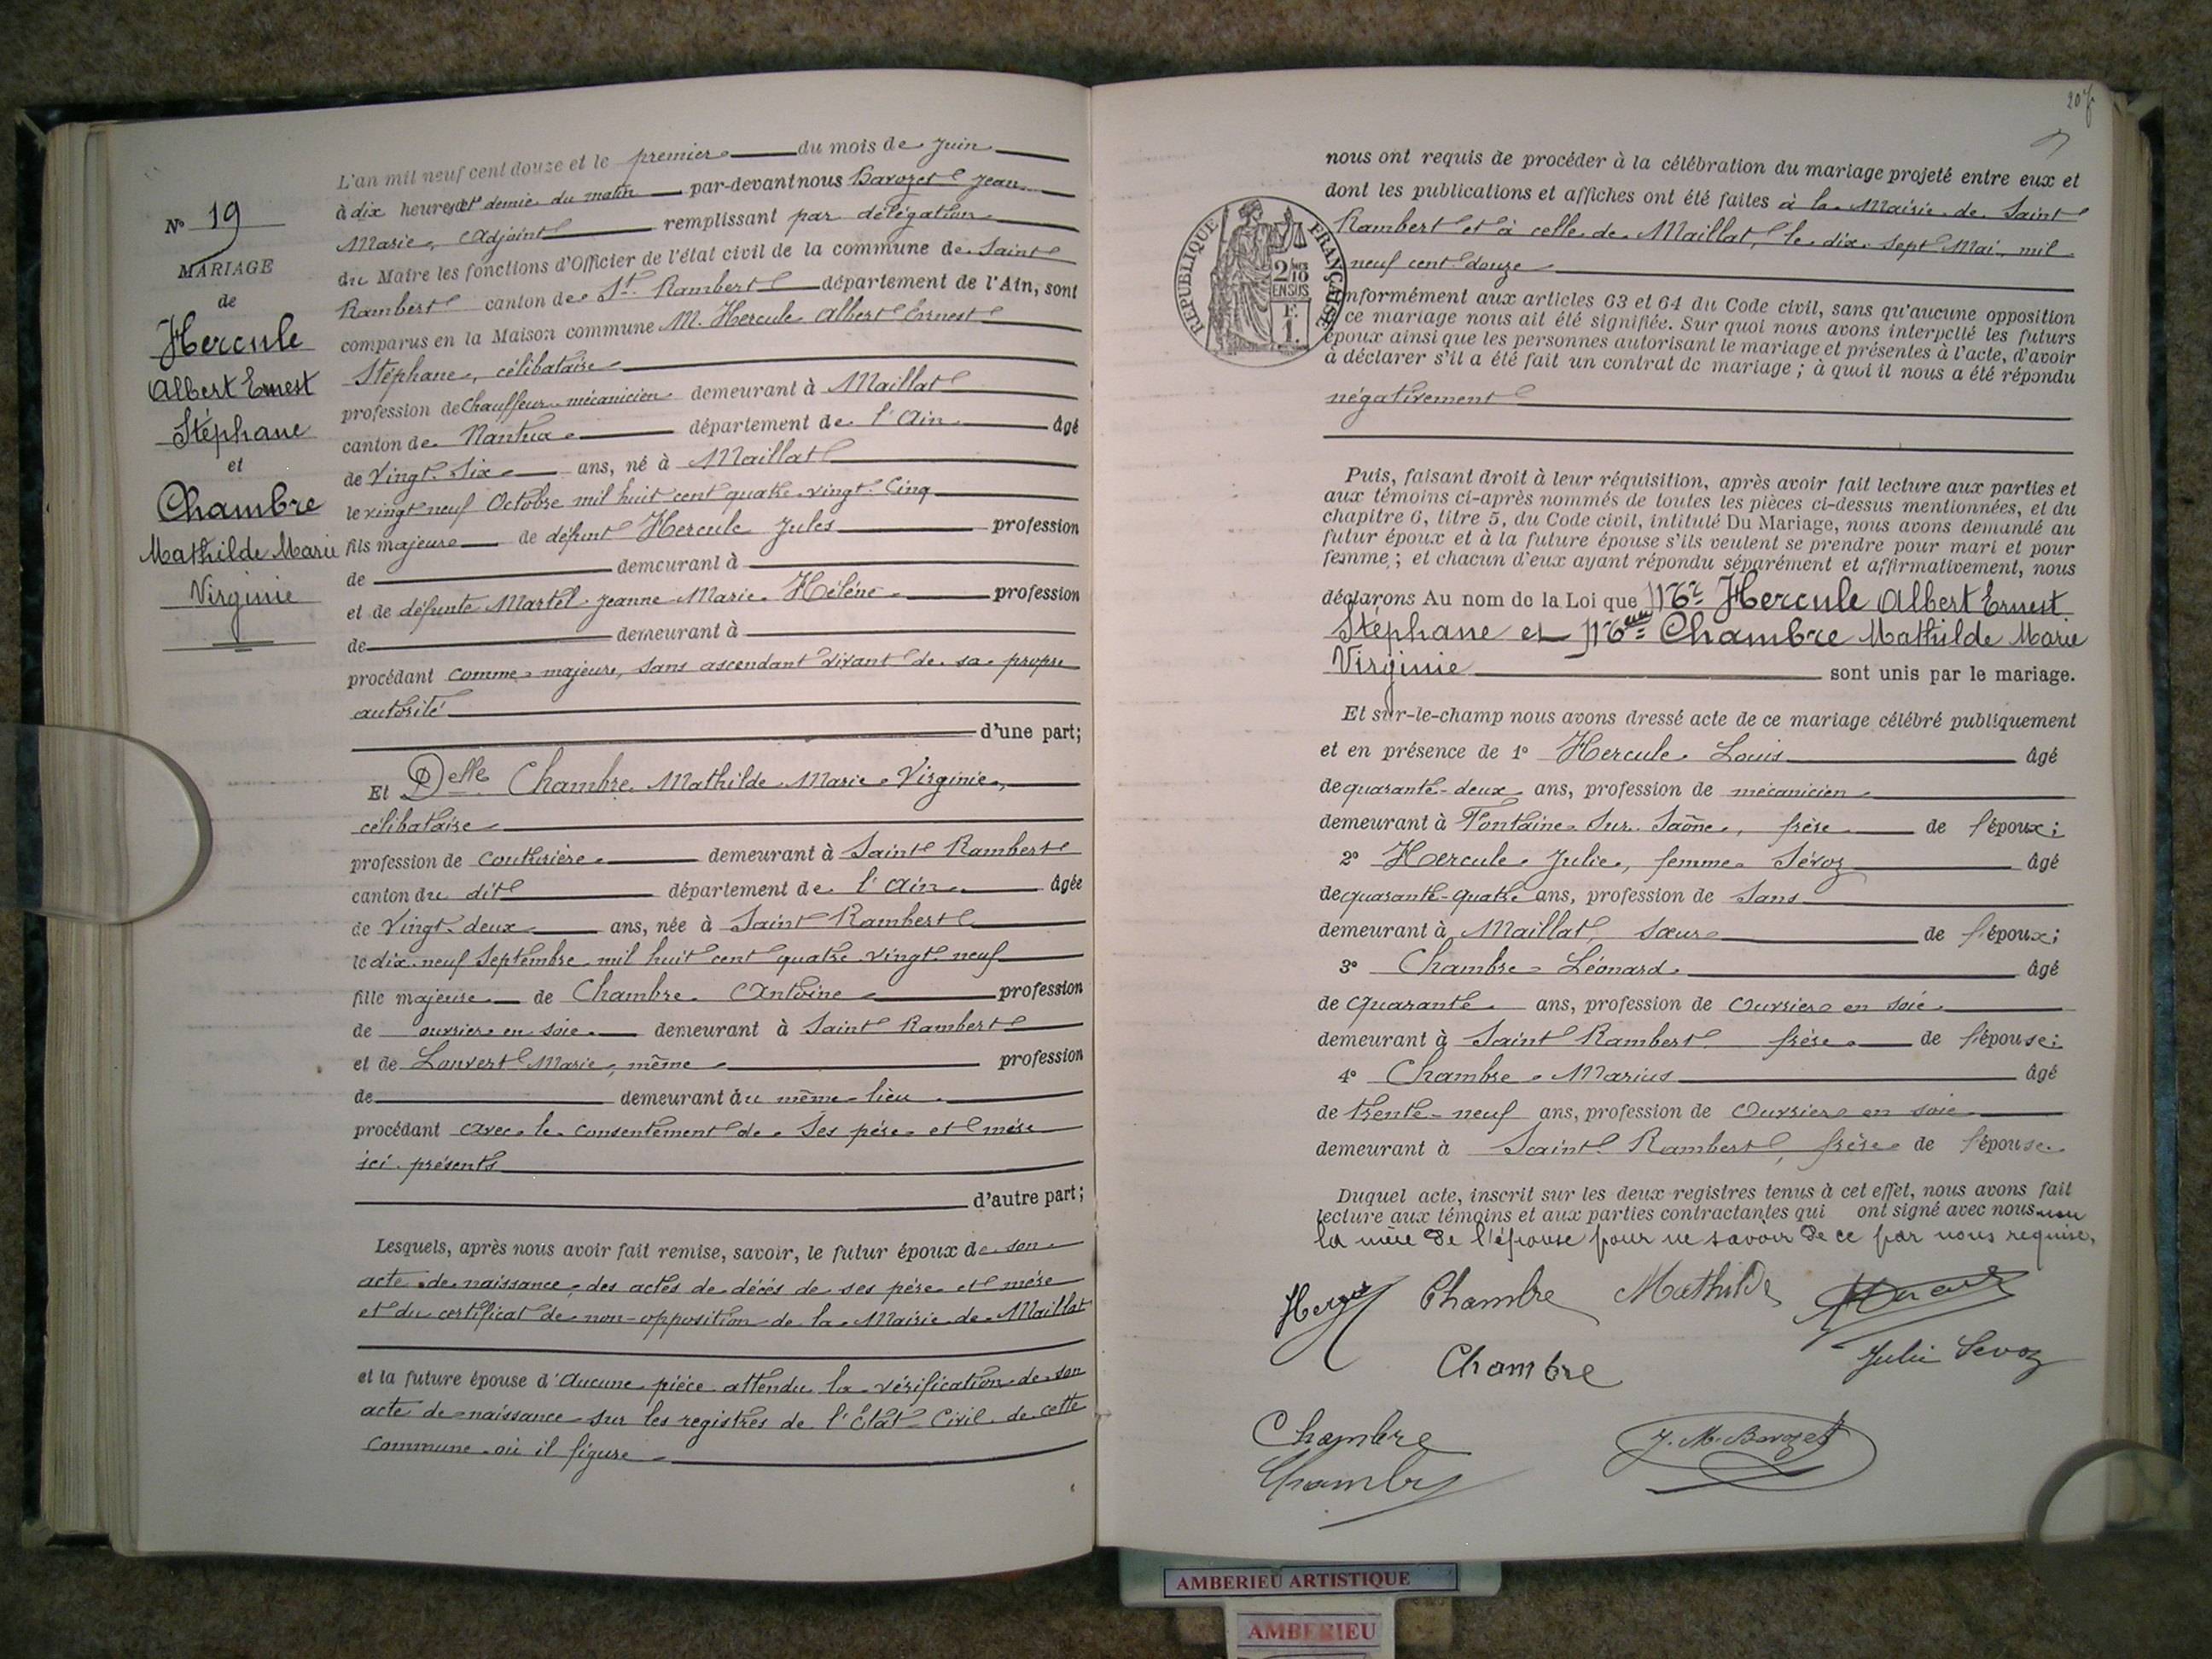 N° 19
MARIAGE
de
Hercule
Albert Ernest
Stéphane
et
Chambre
Mathilde Marie
Virginie
L'an mil neuf cent douze et le premier du mois de Juin
à dix heures et demie du matin par-devant nous Barozet Jean
Marie, Adjoint remplissant par délégation
du Maire les fonctions d'Officier de l'état civil de la commune de Saint
Rambert canton de St. Rambert département de l'Ain, sont
comparus en la Maison commune M. Hercule Albert Ernest
Stéphane, célibataire
profession de Chauffeur-mécanicien demeurant à Maillat
canton de Nantua département de l'Ain âgé
de Vingt-Six ans, né à Maillat
le vingt neuf Octobre mil huit cent quatre-vingt-Cinq
fils majeur de défunt Hercule Jules profession
de demeurant à
et de défunte Martel Jeanne-Marie Hélène profession
de demeurant à
procédant comme majeur, sans ascendant vivant de sa propre
autorité
d'une part;
Et Delle Chambre Mathilde Marie Virginie,
célibataire
profession de couturière demeurant à Saint Rambert
canton du dit département de l'Ain âgée
de Vingt-deux ans, née à Saint Rambert
le dix-neuf Septembre mil huit cent quatre vingt neuf
fille majeure de Chambre Antoine profession
de ouvrier en soie demeurant à Saint Rambert
et de Louvert Marie, même profession
de demeurant au même lieu
procédant avec le consentement de Ses père et mère
ici présents
d'autre part;
Lesquels, après nous avoir fait remise, savoir, le futur époux de son
acte de naissance, des actes de décès de ses père et mère
et du certificat de non-opposition de la Mairie de Maillat
et la future épouse d'Aucune pièce attendu la vérification de son
acte de naissance sur les registres de l'Etat-Civil de cette
Commune où il figure
nous ont requis de procéder à la célébration du mariage projeté entre eux et
dont les publications et affiches ont été faites à la Mairie de Saint
Rambert et à celle de Maillat, le dix-sept Mai mil
neuf cent douze
RÉPUBLIQUE FRANÇAISE
2/10 EN SUS
F. 1.
onformément aux articles 63 et 64 du Code civil, sans qu'aucune opposition
ce mariage nous ait été signifiée. Sur quoi nous avons interpellé les futurs
époux ainsi que les personnes autorisant le mariage et présentes à l'acte, d'avoir
à déclarer s'il a été fait un contrat de mariage; à quoi il nous a été répondu
négativement
Puis, faisant droit à leur réquisition, après avoir fait lecture aux parties et
aux témoins ci-après nommés de toutes les pièces ci-dessus mentionnées, et du
chapitre 6, titre 5, du Code civil, intitulé Du Mariage, nous avons demandé au
futur époux et à la future épouse s'ils veulent se prendre pour mari et pour
femme; et chacun d'eux ayant répondu séparément et affirmativement, nous
déclarons Au nom de la Loi que Mr Hercule Albert Ernest
Stéphane et Melle Chambre Mathilde Marie
Virginie sont unis par le mariage.
Et sur-le-champ nous avons dressé acte de ce mariage célébré publiquement
et en présence de 1° Hercule Louis âgé
de quarante-deux ans, profession de mécanicien
demeurant à Fontaine-Sur-Saône, frère de l'époux;
2° Hercule Julie, femme Sévoz âgé
de quarante-quatre ans, profession de Sans
demeurant à Maillat, sœur de l'époux;
3° Chambre Léonard âgé
de Quarante ans, profession de Ouvrier en soie
demeurant à Saint Rambert frère de l'épouse;
4° Chambre Marius âgé
de trente-neuf ans, profession de Ouvrier en soie
demeurant à Saint Rambert, frère de l'épouse.
Duquel acte, inscrit sur les deux registres tenus à cet effet, nous avons fait
lecture aux témoins et aux parties contractantes qui ont signé avec nous non
la mère de l'épouse pour ne savoir de ce par nous requise,
Chambre Mathilde
Chambre
Julie Sevoz
Chambre
J. M. Barozet
AMBERIEU ARTISTIQUE
AMBERIEU